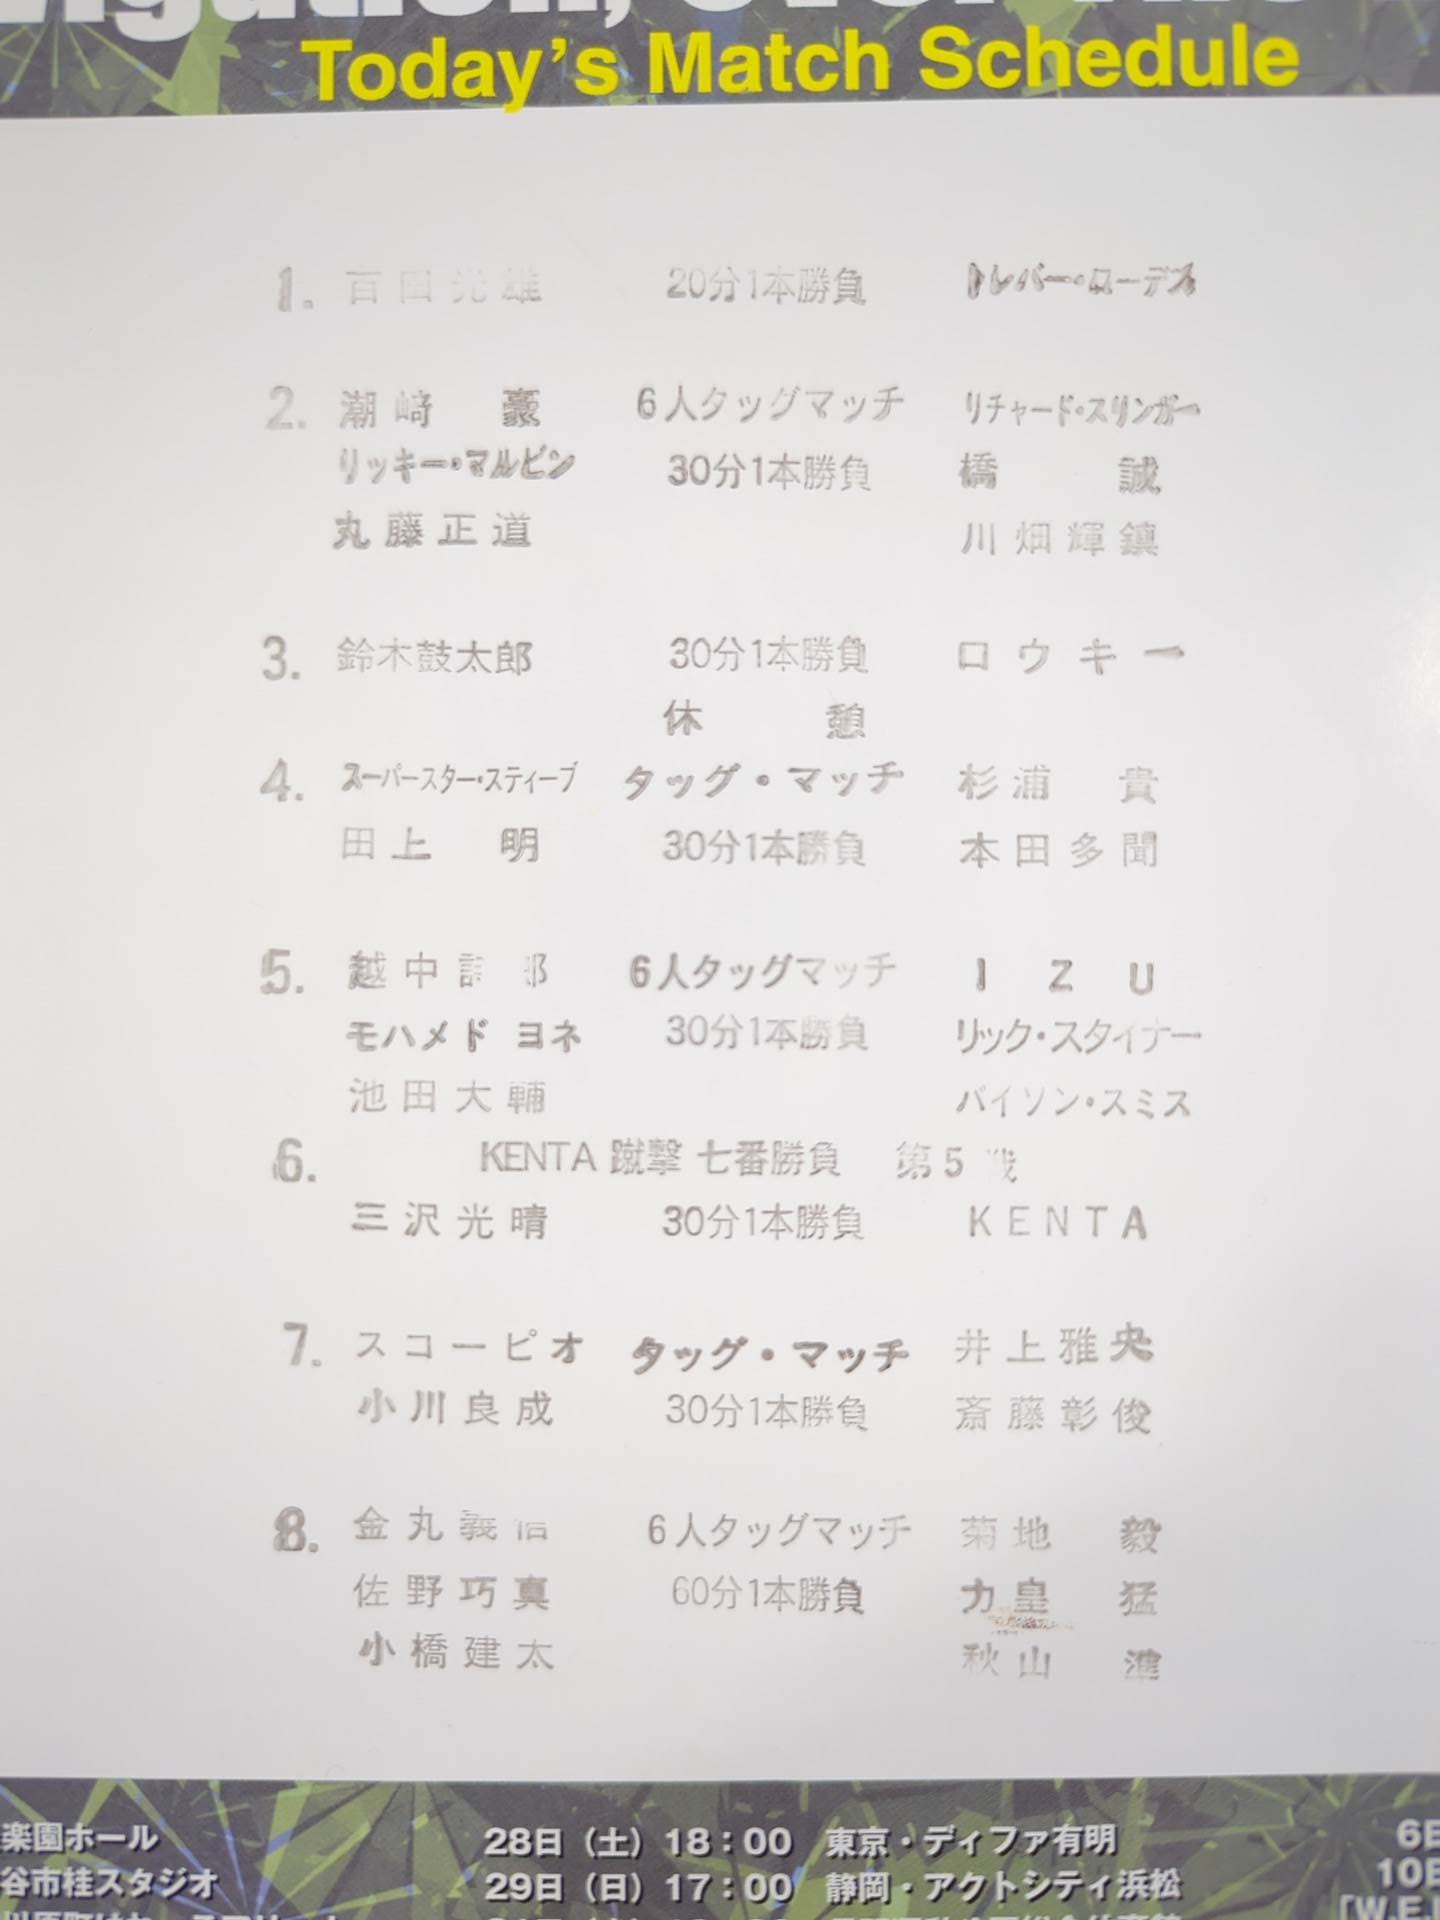 Today's Match Schedule
1. 百田光雄 20分1本勝負 トレバー・ローデス
2. 潮﨑 豪 6人タッグマッチ リチャード・スリンガー
リッキー・マルビン 30分1本勝負 橋 誠
丸藤正道 川畑輝鎮
3. 鈴木鼓太郎 30分1本勝負 ロウキー
休 憩
4. スーパースター・スティーブ タッグ・マッチ 杉浦 貴
田上 明 30分1本勝負 本田多聞
5. 越中詩郎 6人タッグマッチ I Z U
モハメド ヨネ 30分1本勝負 リック・スタイナー
池田大輔 バイソン・スミス
6. KENTA 蹴撃 七番勝負 第5戦
三沢光晴 30分1本勝負 KENTA
7. スコーピオ タッグ・マッチ 井上雅央
小川良成 30分1本勝負 斎藤彰俊
8. 金丸義信 6人タッグマッチ 菊地 毅
佐野巧真 60分1本勝負 力皇 猛
小橋建太 秋山 準
楽園ホール 28日（土）18：00 東京・ディファ有明 6日
谷市桂スタジオ 29日（日）17：00 静岡・アクトシティ浜松 10日